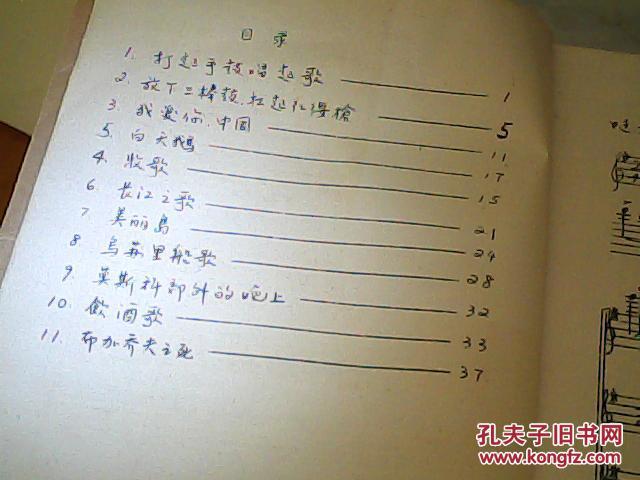 目录
1. 打起手鼓唱起歌 1
2. 放下三棒鼓.扛起红缨槍 5
3. 我爱你.中国 11
5. 白天鹅 17
4. 牧歌 15
6. 长江之歌 21
7. 美丽岛 24
8. 乌苏里船歌 28
9. 莫斯科郊外的晚上 32
10. 飲酒歌 33
11. 布加乔夫之死 37
孔夫子旧书网
www.kongfz.com